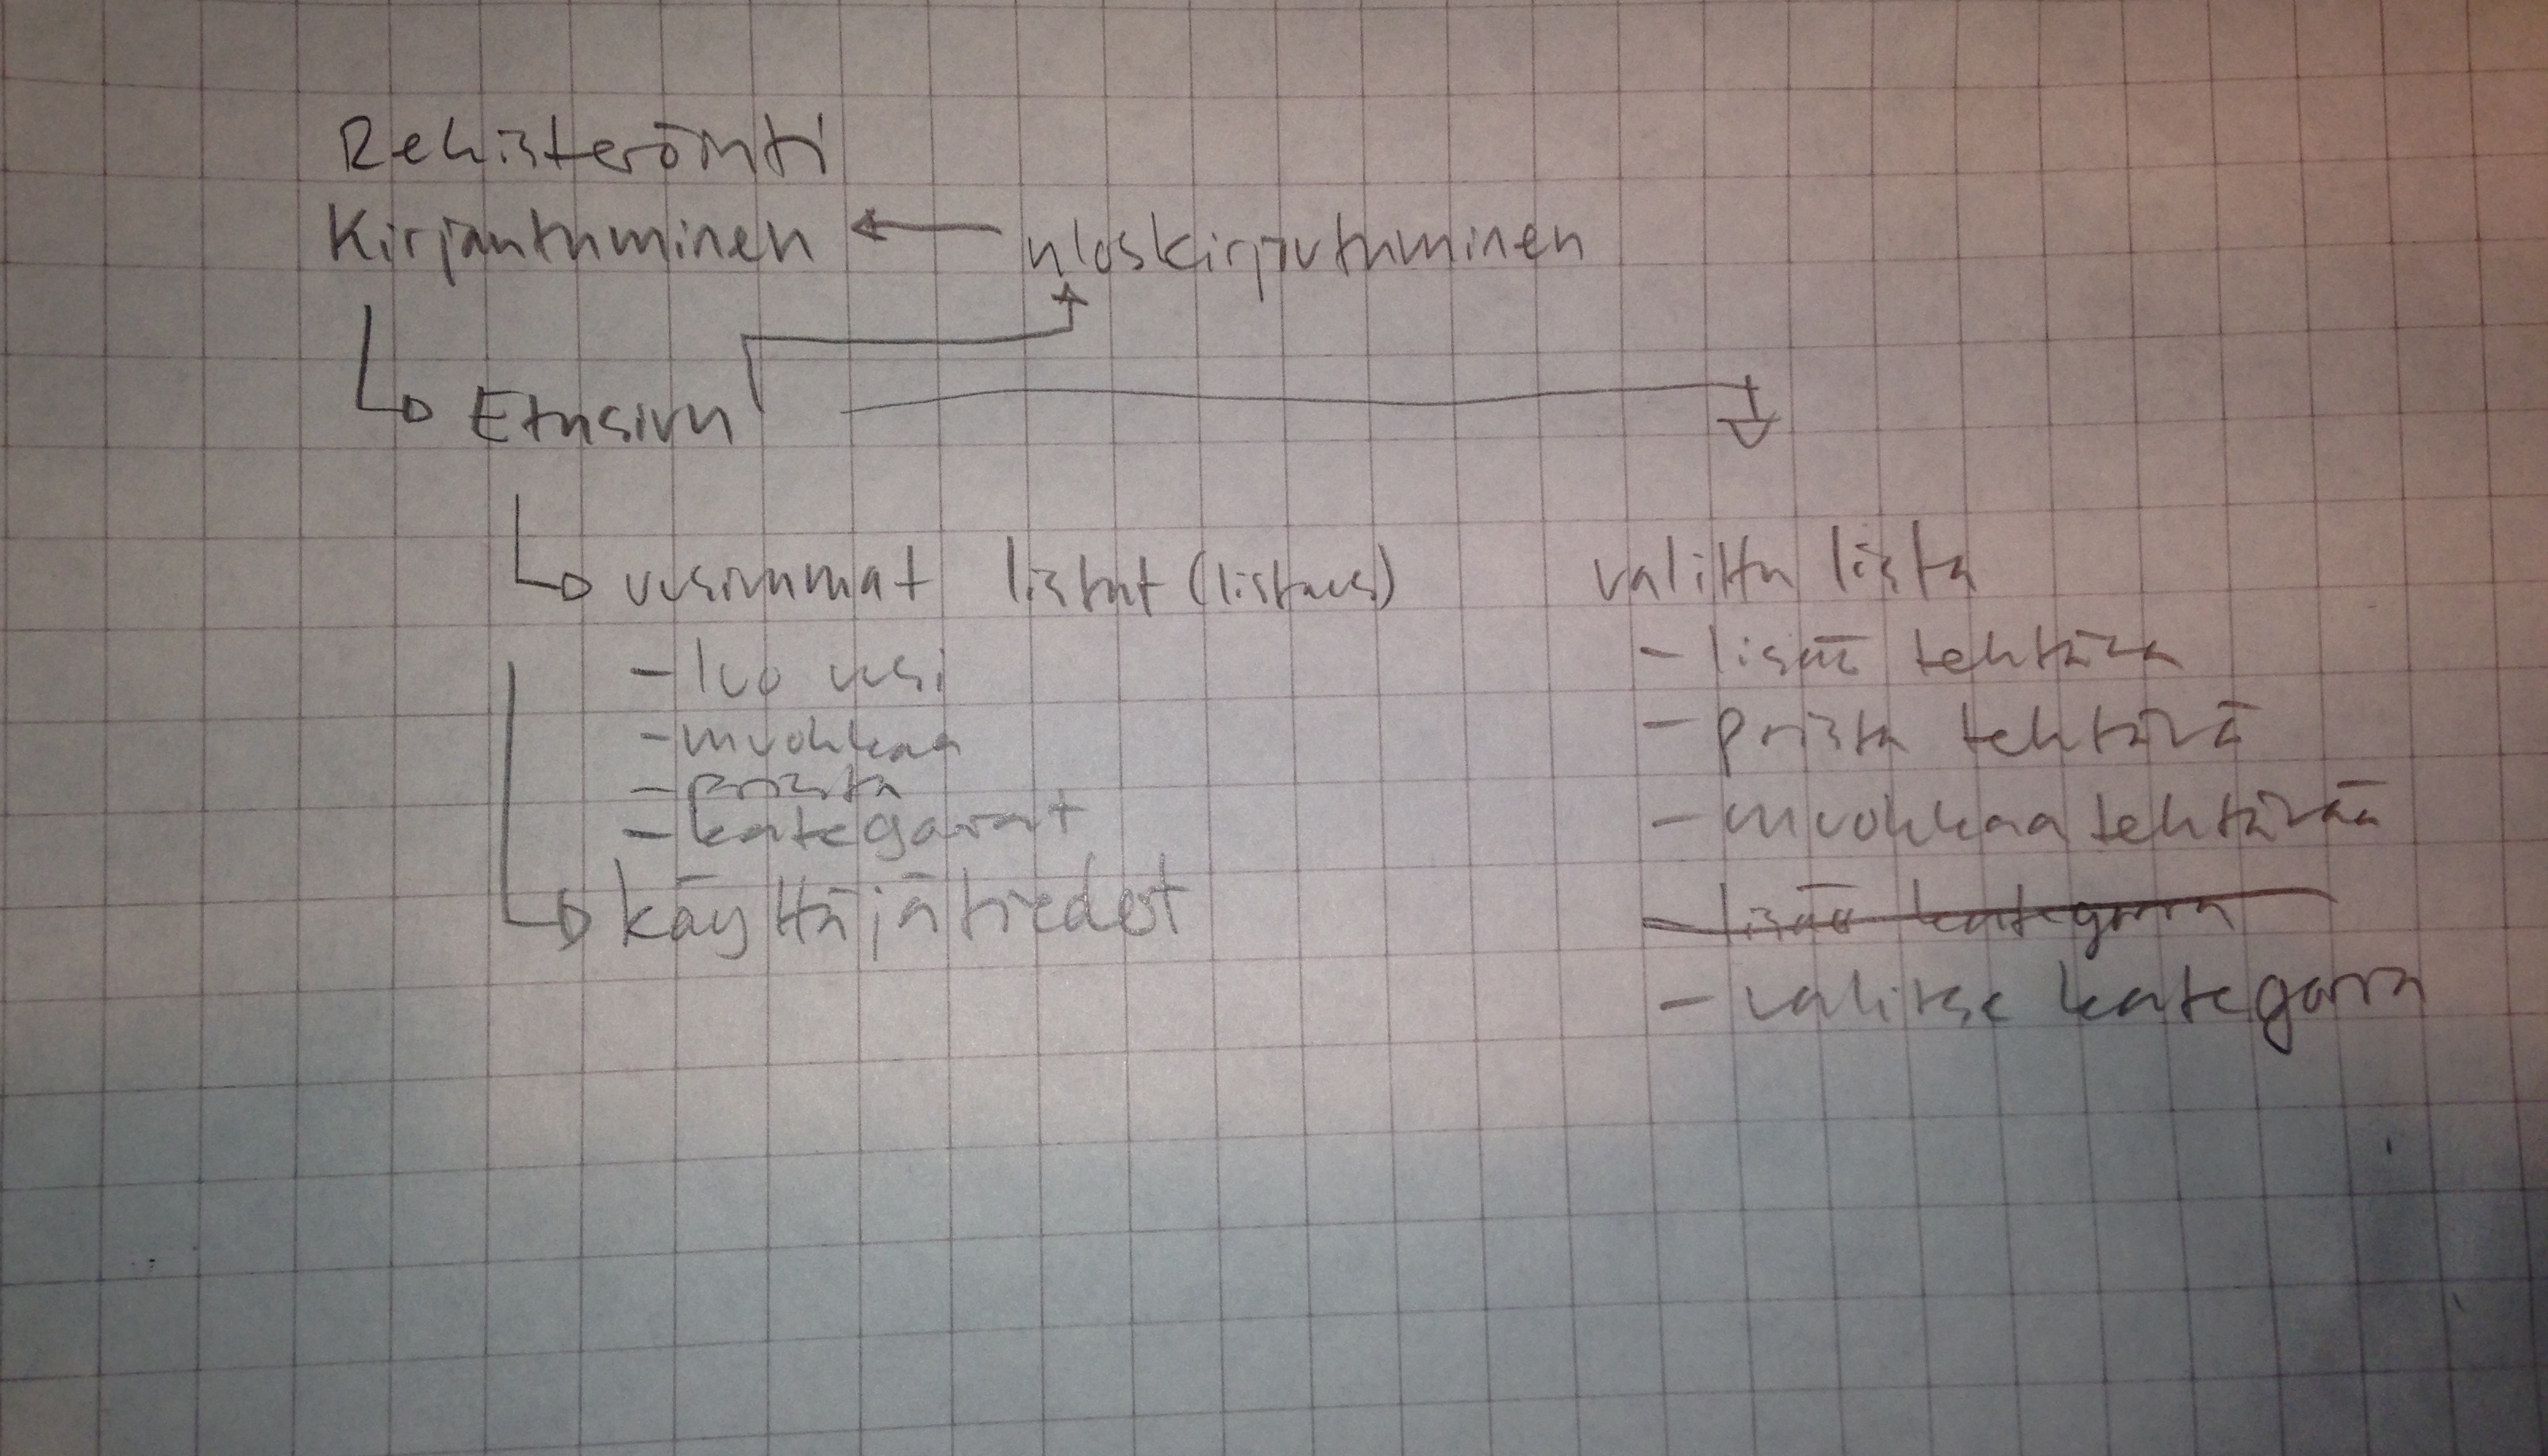 Rekisteröinti
Kirjautuminen
uloskirjautuminen
Etusivu
uusimmat listat (listaus)
- luo uusi
- muokkaa
- poista
- kategoriat
käyttäjätiedot
valittu lista
- lisää tehtävä
- poista tehtävä
- muokkaa tehtävää
- lisää kategoria
- valitse kategoria